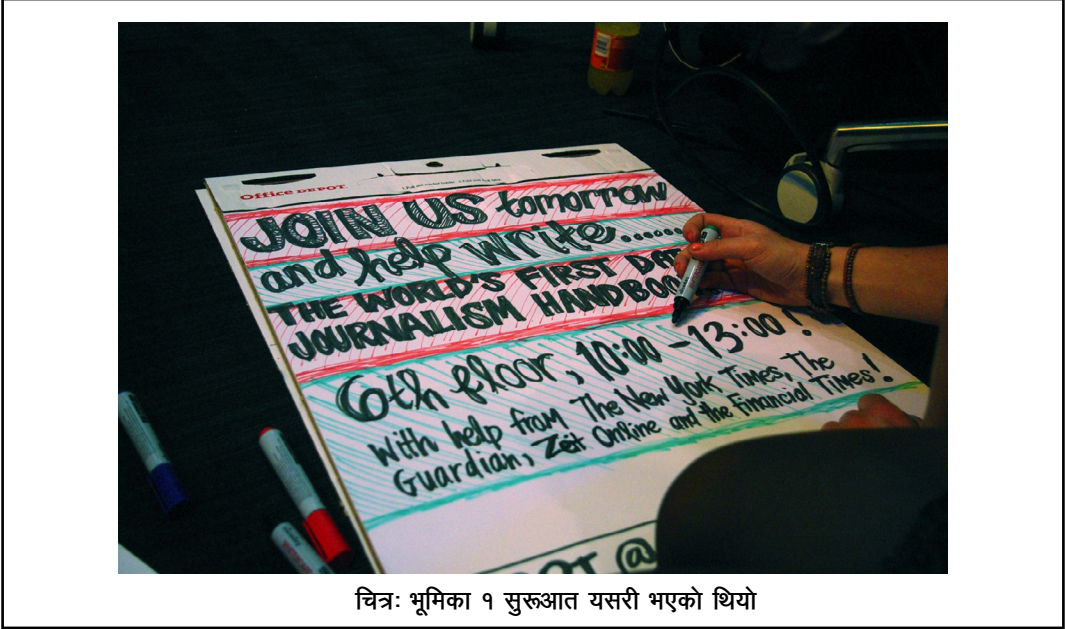 Office DEPOT
JOIN US tomorrow
and help write.......
THE WORLD'S FIRST DATA
JOURNALISM HANDBOO
6th floor, 10:00 - 13:00!
With help from The New York Times, The
Guardian, Zeit Online and the Financial Times!
@
चित्रः भूमिका १ सुरूआत यसरी भएको थियो